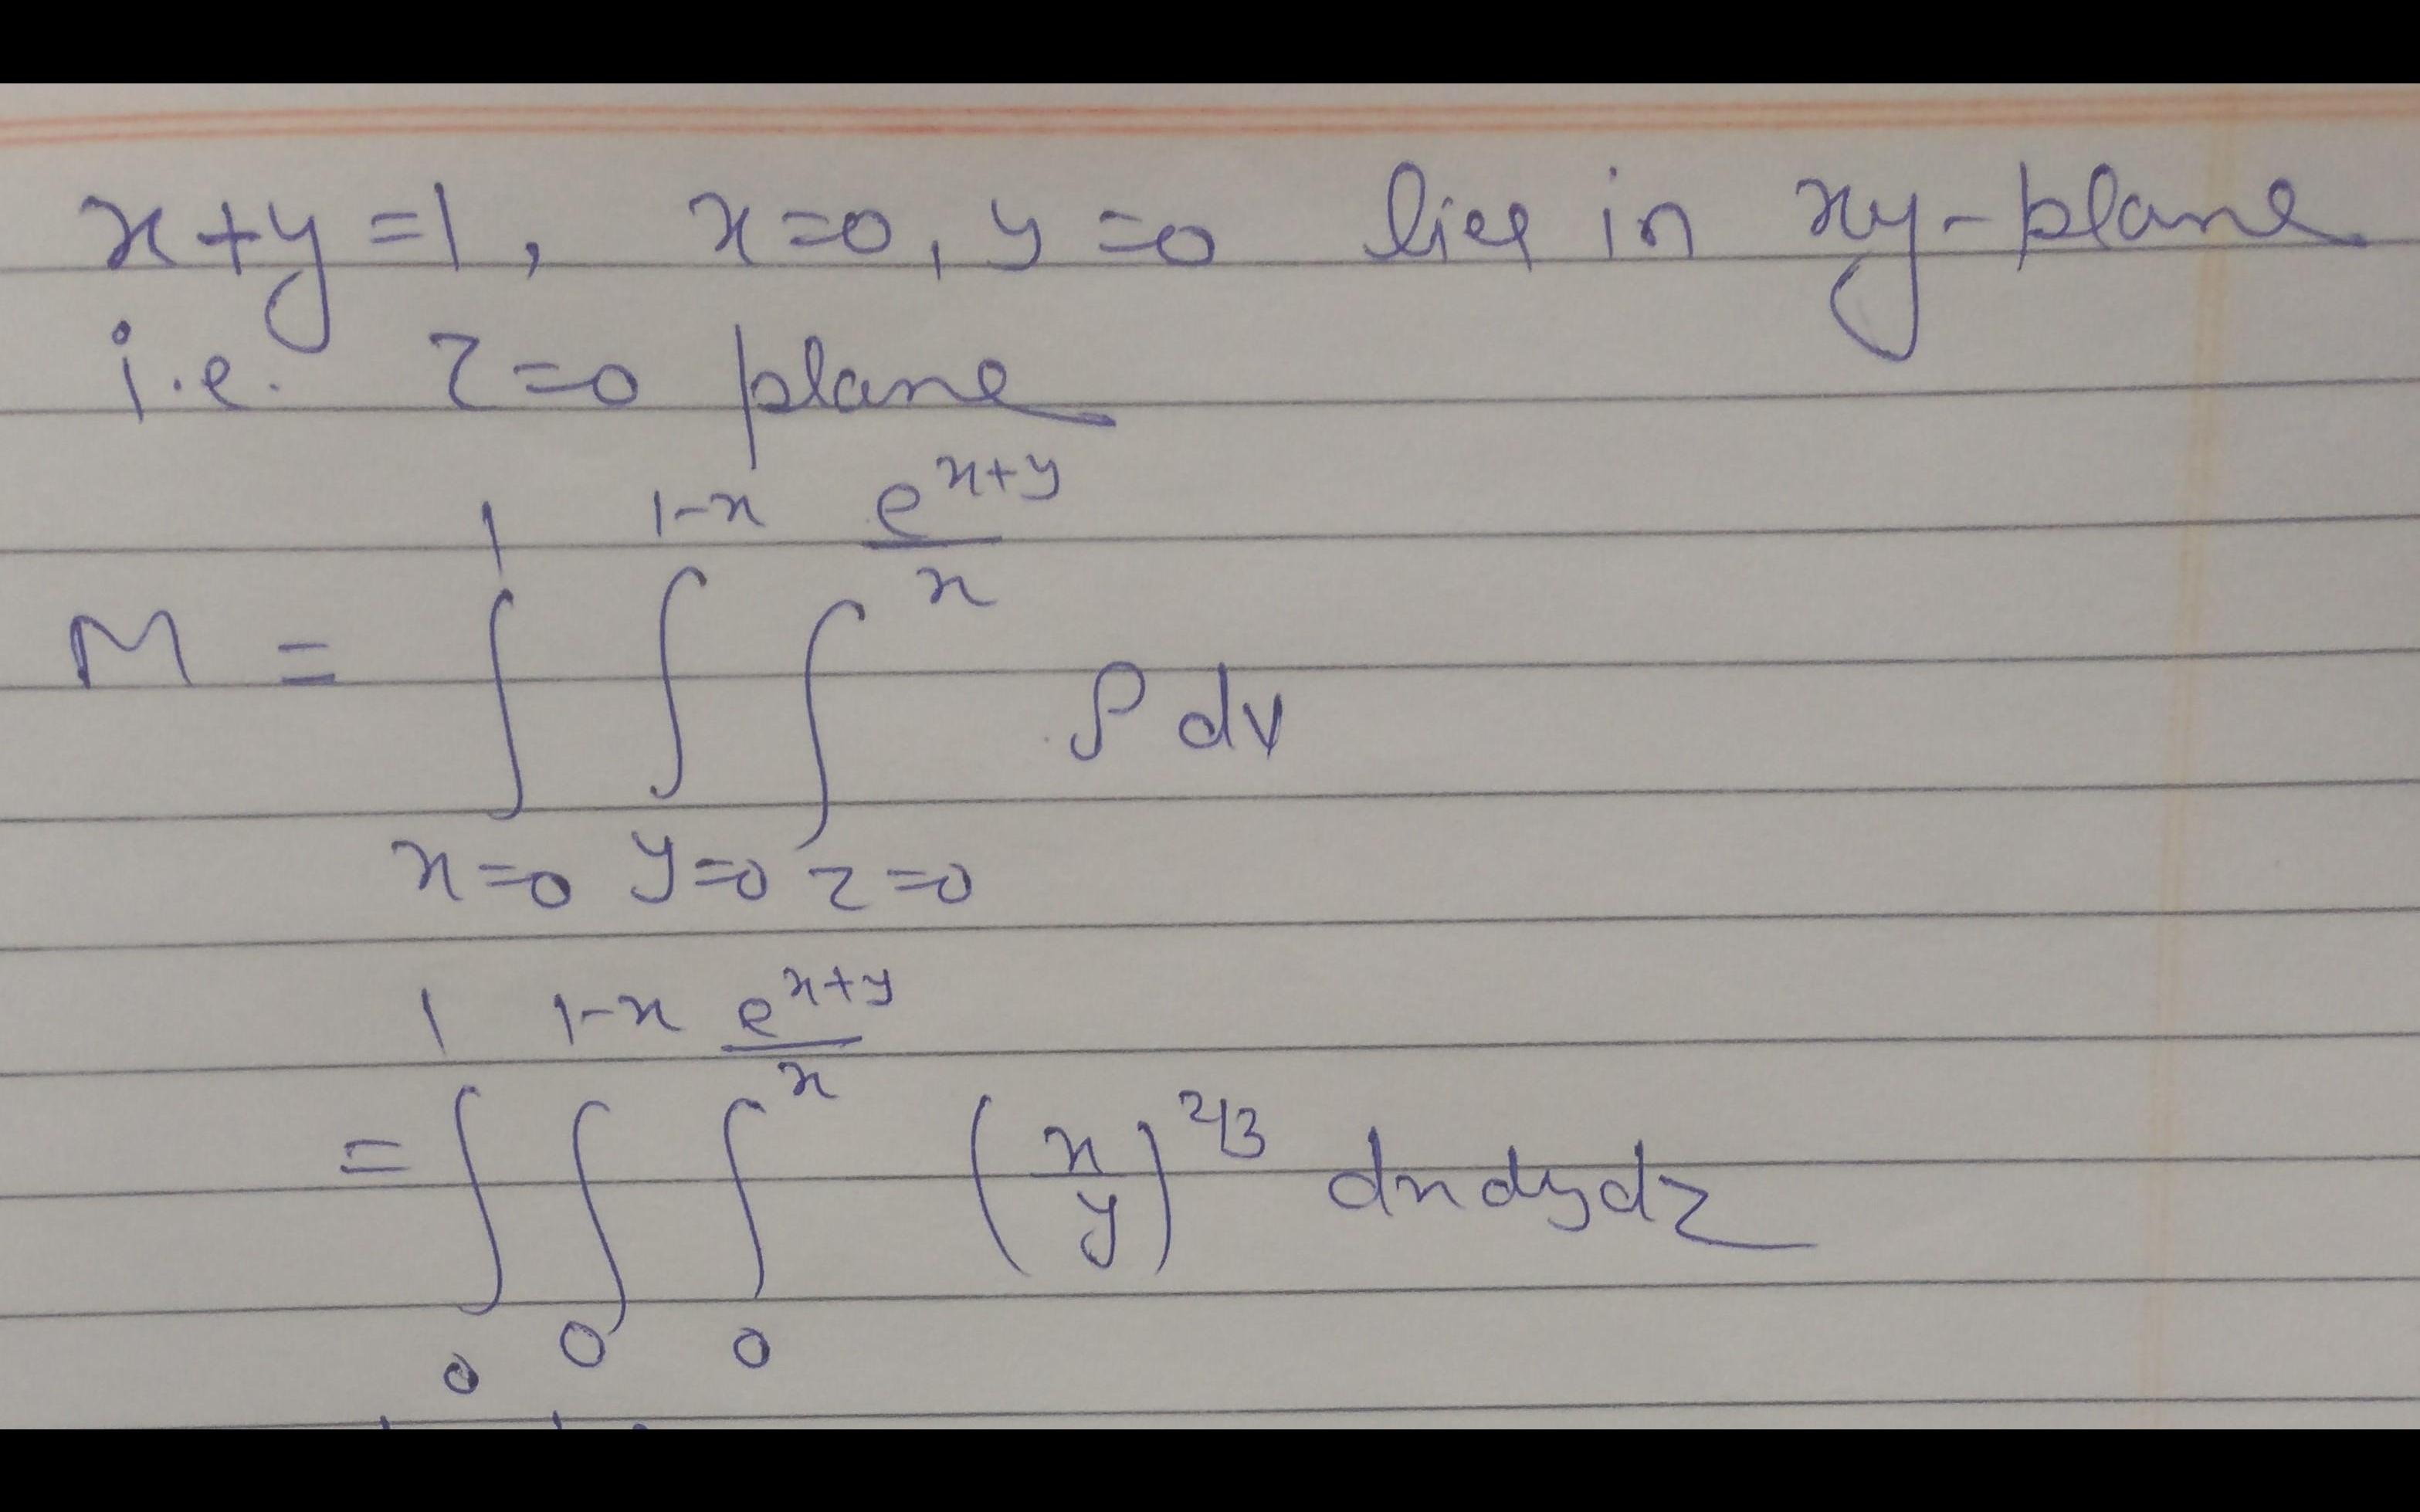 x+y=1, x=0, y=0 lies in xy-plane
i.e. z=0 plane
M = ∫_{x=0}^{1} ∫_{y=0}^{1-x} ∫_{z=0}^{e^{x+y}/x} ρ dv
= ∫_{0}^{1} ∫_{0}^{1-x} ∫_{0}^{e^{x+y}/x} (x/y)^{2/3} dx dy dz